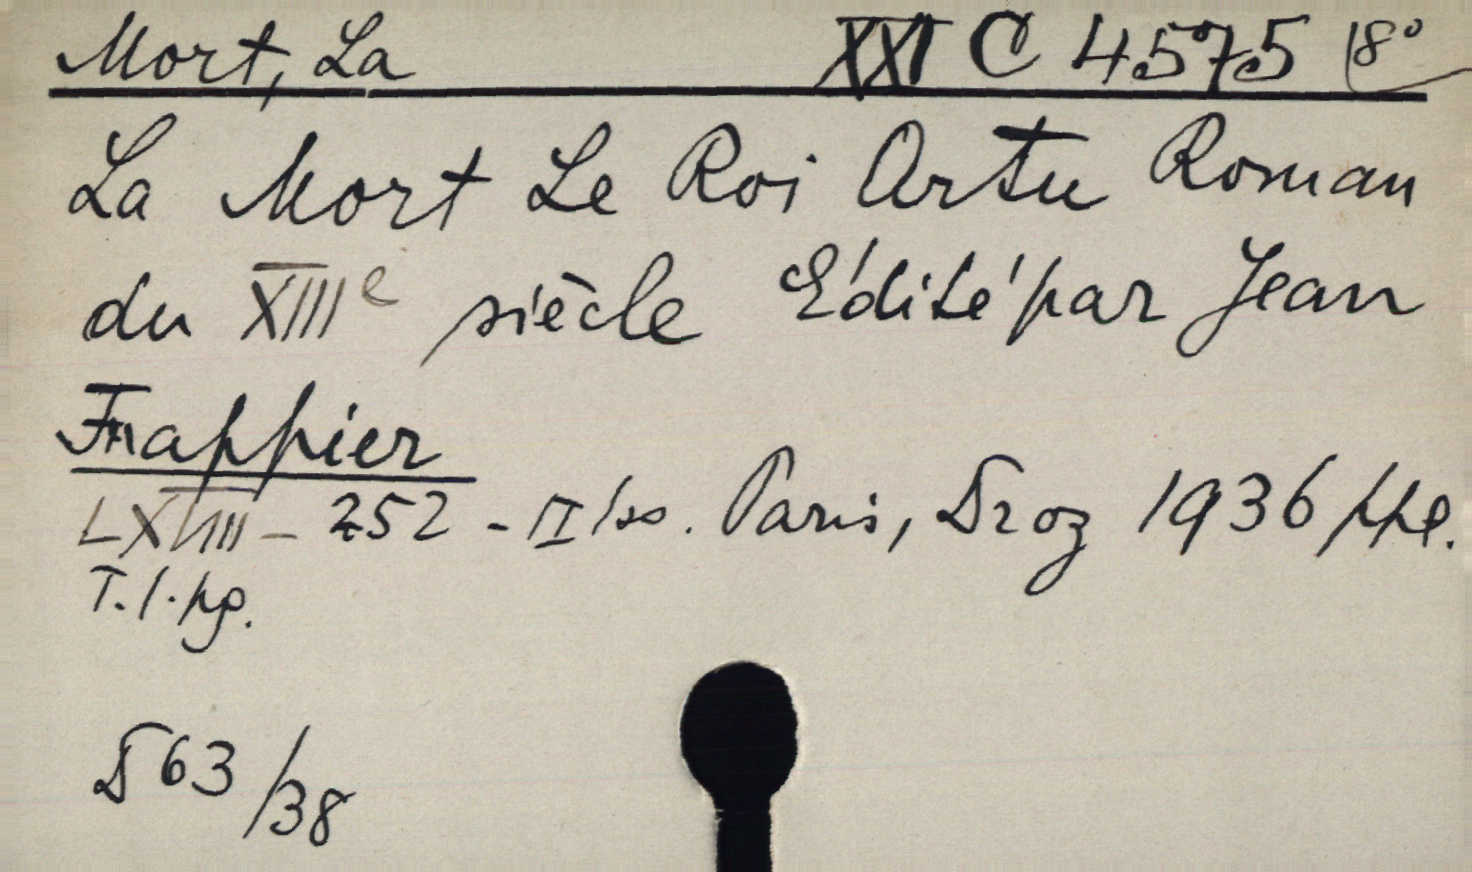 Mort, La XXI C 4575 18°
La Mort Le Roi Artu Roman
du XIIIe siècle Édité par Jean
Frappier
252 - II Paris, Droz 1936
T. l. pg.
D 63/38